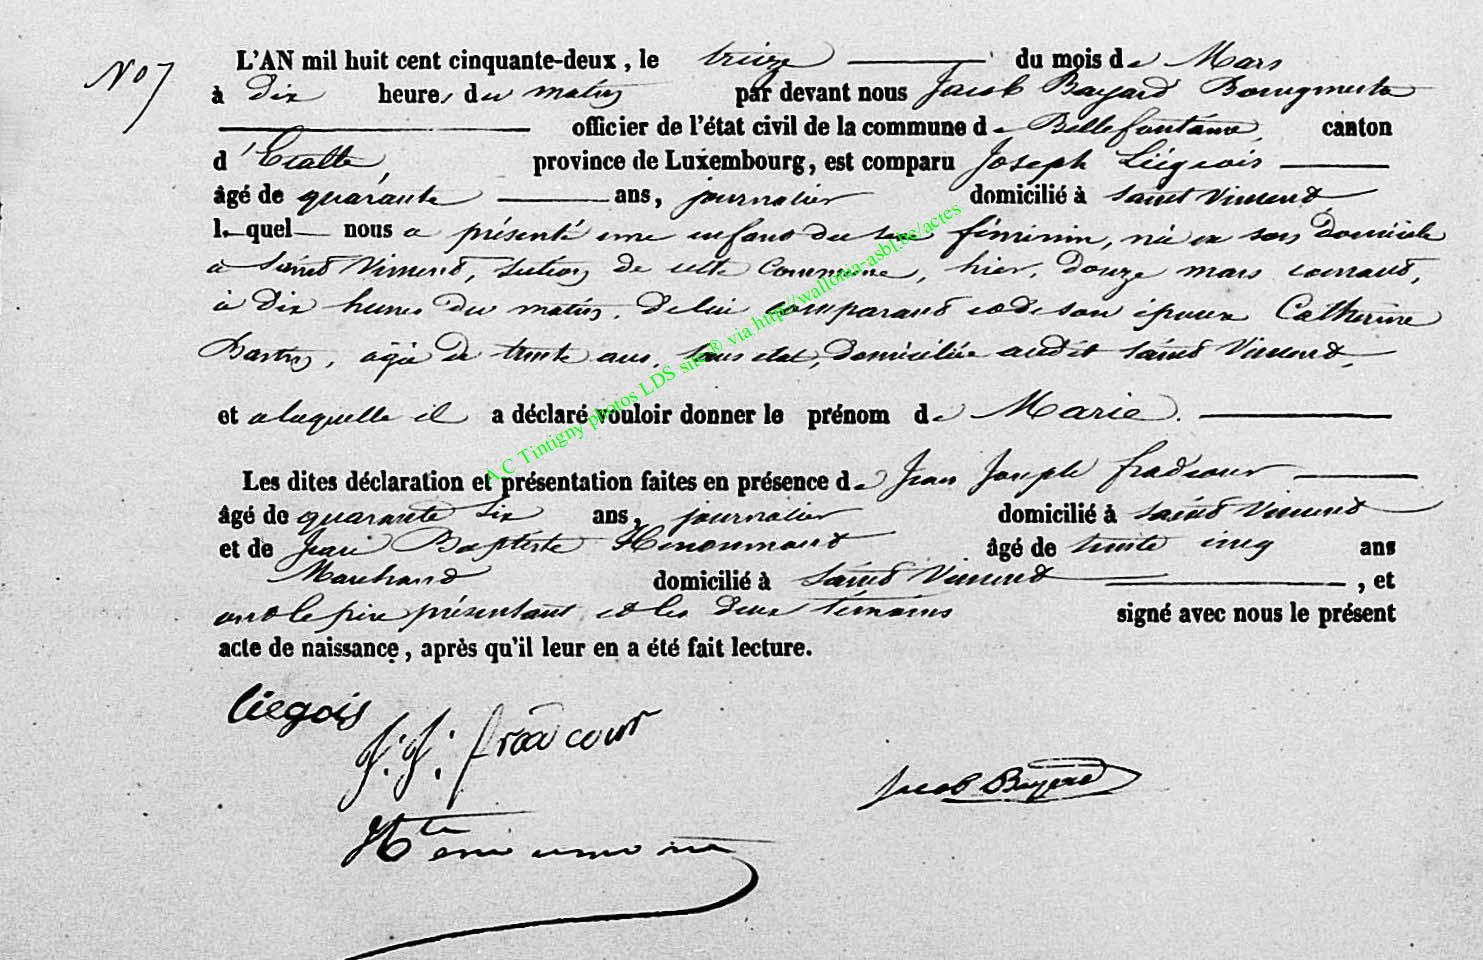 No 7
L'AN mil huit cent cinquante-deux, le treize du mois de Mars
à Dix heures du matin par devant nous Jacob Bayard Bourgmestre
officier de l'état civil de la commune de Bellefontaine, canton
d'Etalle, province de Luxembourg, est comparu Joseph Liégeois
âgé de quarante ans, journalier domicilié à Saint Vincent
lequel nous a présenté une enfant du sexe féminin, née en son Domicile
à Saint Vincent, section de cette Commune, hier, douze mars courant,
à Dix heures du matin, de lui comparant et de son épouse Catherine
âgée de trente ans, sans état, domiciliée audit Saint Vincent,
et a laquelle il a déclaré vouloir donner le prénom de Marie.
Les dites déclaration et présentation faites en présence de Jean Joseph fradcour
âgé de quarante six ans, journalier domicilié à Saint Vincent
et de Jean Baptiste âgé de trente cinq ans
Marchand domicilié à Saint Vincent, et
ont le père présentant et les deux témoins signé avec nous le présent
acte de naissance, après qu'il leur en a été fait lecture.
liegois
J. J. fradcour
Jacob Bayard
A C Tintigny photos LDS site® via http//wallonia-asbl.be/actes